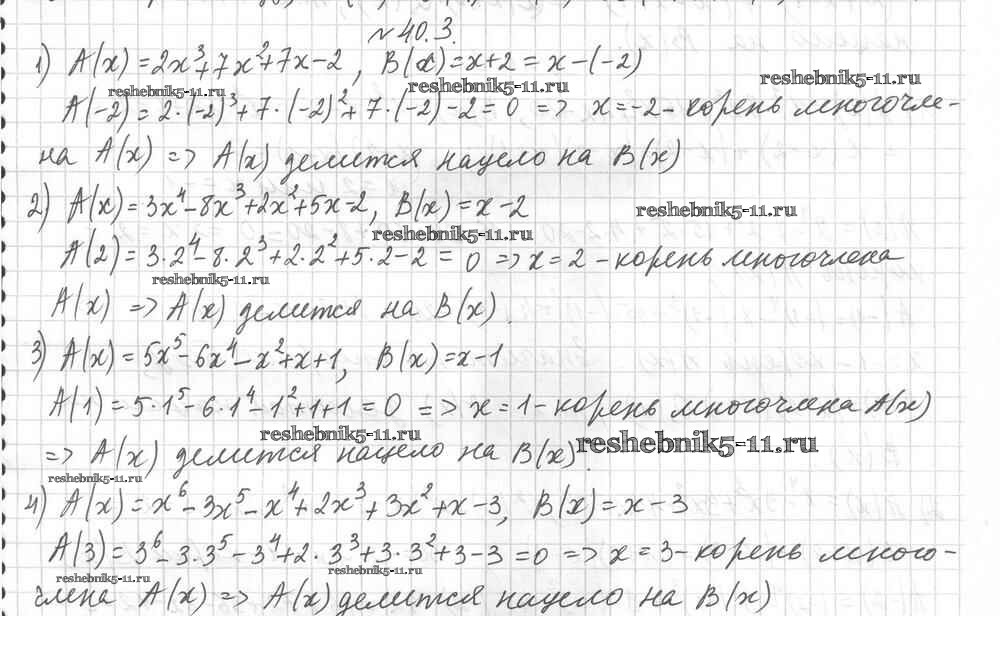 №40.3.
1) A(x)=2x³+7x²+7x-2, B(x)=x+2=x-(-2)
reshebnik5-11.ru reshebnik5-11.ru reshebnik5-11.ru
A(-2)=2·(-2)³+7·(-2)²+7·(-2)-2=0 => x=-2-корень многочле-
на A(x) => A(x) делится нацело на B(x)
2) A(x)=3x⁴-8x³+2x²+5x-2, B(x)=x-2
reshebnik5-11.ru reshebnik5-11.ru
A(2)=3·2⁴-8·2³+2·2²+5·2-2=0 => x=2-корень многочлена
reshebnik5-11.ru
A(x) => A(x) делится на B(x).
3) A(x)=5x⁵-6x⁴-x²+x+1, B(x)=x-1
A(1)=5·1⁵-6·1⁴-1²+1+1=0 => x=1-корень многочлена A(x)
reshebnik5-11.ru reshebnik5-11.ru
=> A(x) делится нацело на B(x).
reshebnik5-11.ru
4) A(x)=x⁶-3x⁵-x⁴+2x³+3x²+x-3, B(x)=x-3
A(3)=3⁶-3·3⁵-3⁴+2·3³+3·3²+3-3=0 => x=3-корень много-
reshebnik5-11.ru reshebnik5-11.ru
члена A(x) => A(x) делится нацело на B(x)